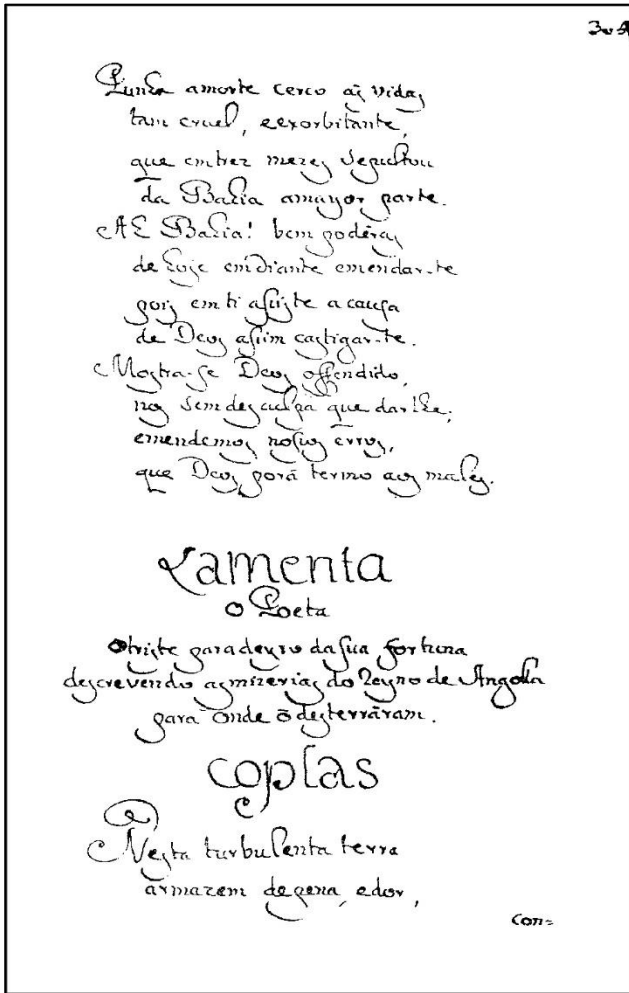 Punha amorte cerco ás vidas
tam cruel, eexorbitante,
que emtrez mezes sepultou
da Bahia amayor parte.
Ah Bahia! bem podéras
de hoje emdiante emendar-te
pois em ti assiste a causa
de Deos assim castigar-te.
Mostra-se Deos offendido,
nos sem desculpa que dar lhe;
emendemos nossos érros,
que Deos porá termo aos males.
Lamenta
o Poeta
otriste paradeyro da sua fortuna
descrevendo asmizerias do Reyno de Angolla
para onde õ desterráram.
coplas
Nesta turbulenta terra
armazem depena, edor,
con=